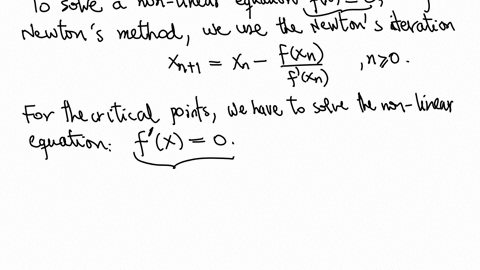 To solve a non-linear equation
Newton's method, we use the Newton's iteration
x_{n+1} = x_n - f(x_n)/f'(x_n) , n≥0.
For the critical points, we have to solve the non-linear
equation: f'(x) = 0.